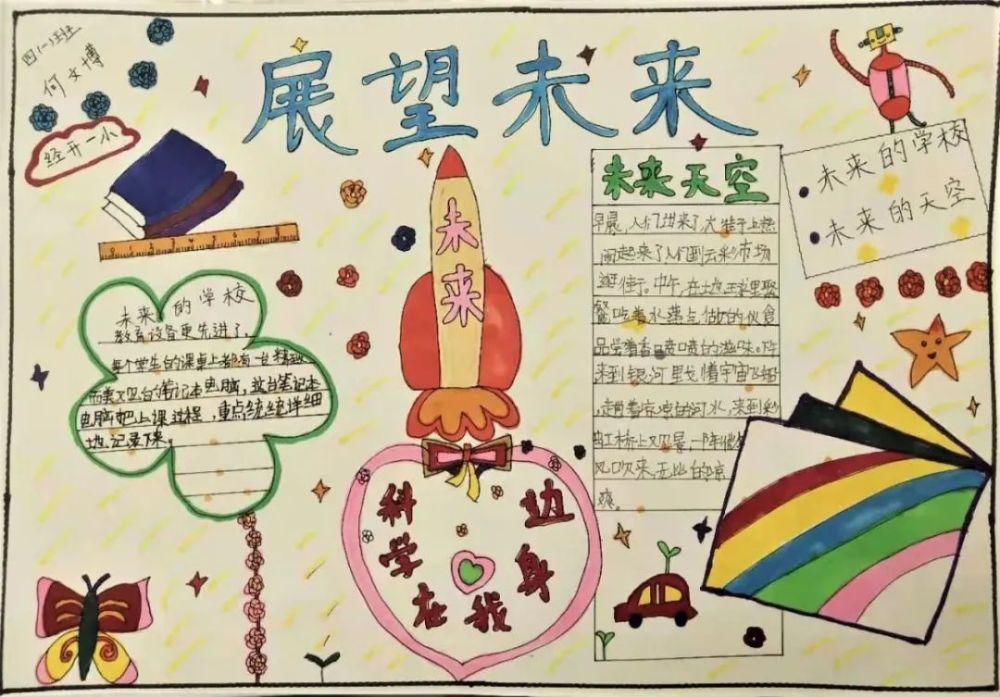 四(一)班
何文博
经开一小
展望未来
未来
未来的学校
未来的天空
未来的学校
教育设备更先进了,
每个学生的课桌上都有一台精致
而美观的笔记本电脑,这台笔记本
电脑把上课过程,重点统统详细
地记录下来。
科学在我身边
未来天空
早晨,人们进来了,大街上热
闹起来了人们到云彩市场
逛街。中午,在土星球里聚
餐吃着水蒸气做的伙食
品尝着香喷喷的滋味。
来到银河里戏着宇宙飞船
,趟着凉凉的河水,来到彩
虹桥上观景,一阵
风吹来,无比的凉
爽。